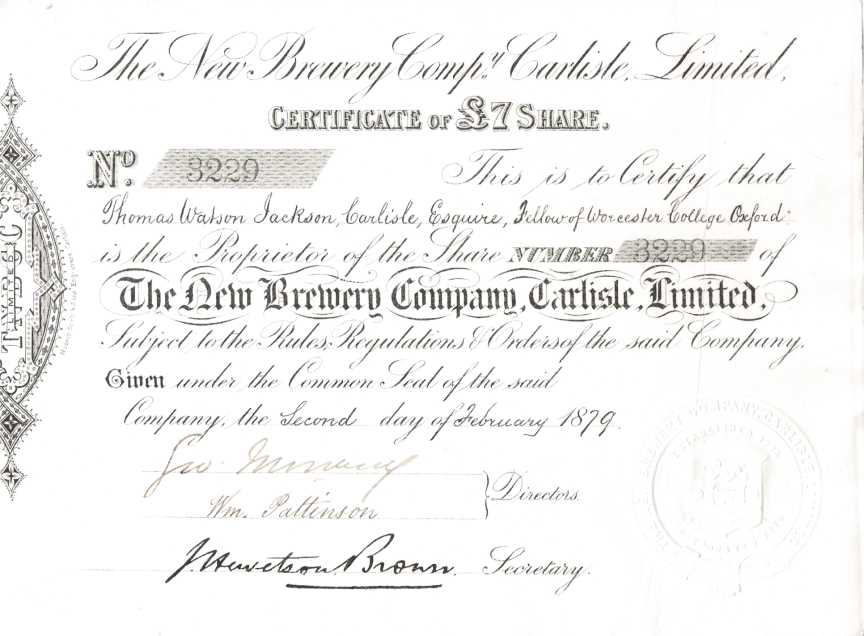 The New Brewery Compy. Carlisle, Limited,
CERTIFICATE OF £7 SHARE.
No. 3229 This is to Certify that
Thomas Watson Jackson, Carlisle, Esquire, Fellow of Worcester College Oxford
is the Proprietor of the Share NUMBER 3229 of
The New Brewery Company, Carlisle, Limited,
Subject to the Rules, Regulations & Orders of the said Company.
Given under the Common Seal of the said
Company, the Second day of February 1879.
Geo
Wm. Pattinson
Directors
J. Hewetson Brown. Secretary.
LIMITED